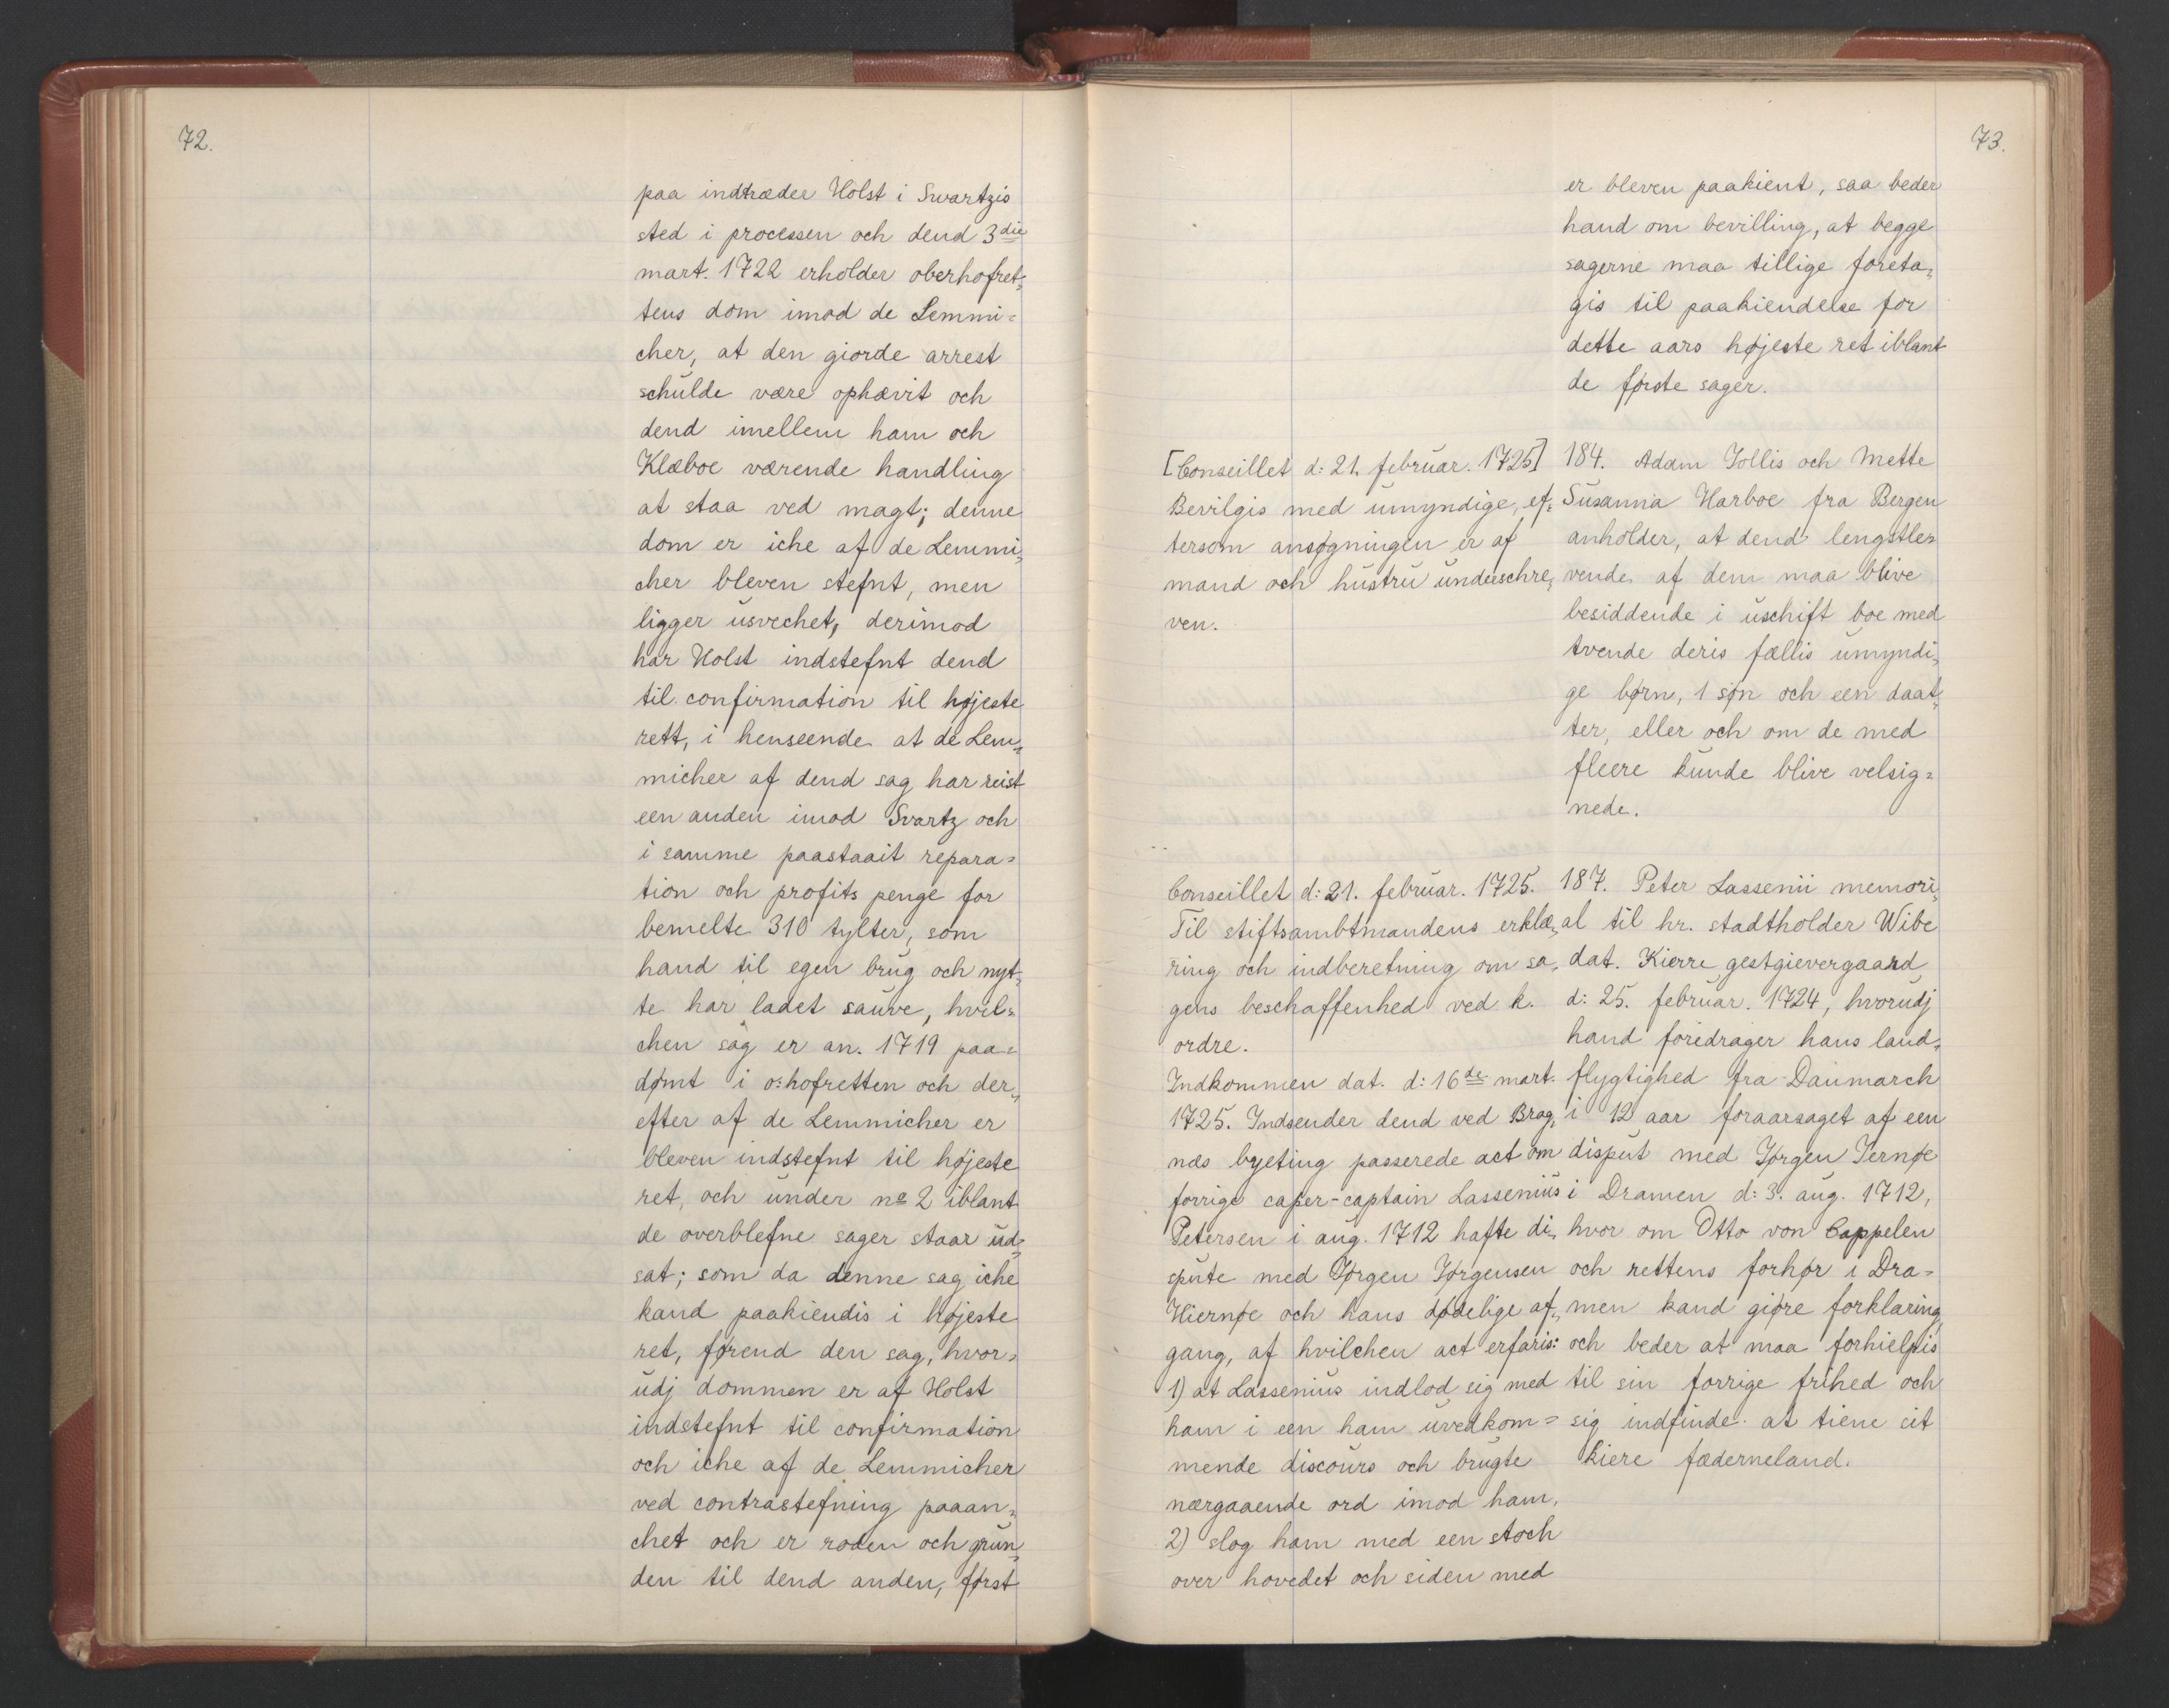 72.
paa indtræder Holst i Swartzis
sted i processen och dend 3die
mart. 1722 erholder oberhofret-
tens dom imod de Lemmi-
cher, at den giorde arrest
schulde være ophævit och
dend imellem ham och
Klæboe værende handling
at staa ved magt; denne
dom er iche af de Lemmi-
cher bleven stefnt, men
ligger usvechet, derimod
har Holst indstefnt dend
til confirmation til højeste
rett, i henseende at de Lem-
micher af dend sag har reist
een anden imod Svartz och
i samme paastaait repara-
tion och profits penge for
bemelte 310 tylter, som
hand til egen brug och nyt-
te har ladet sauve, hvil-
chen sag er an. 1719 paa-
dømt i o:hofretten och der-
efter af de Lemmicher er
bleven indstefnt til højeste
ret, och under no 2 iblant
de overblefne sager staar ud-
sat; som da denne sag iche
kand paakiendis i højeste
ret, førend den sag, hvor-
udj dommen er af Holst
indstefnt til confirmation
och iche af de Lemmicher
ved contrastefning paaan-
chet och er roden och grun-
den til dend anden, først
73.
er bleven paakient, saa beder
hand om bevilling, at begge
sagerne maa tillige foreta-
gis til paakiendelse for
dette aars højeste ret iblant
de første sager.
[Conseillet d: 21. februar. 1725]
Bevilgis med umyndige, ef-
tersom ansøgningen er af
mand och hustru underschre-
ven.
184. Adam Jollis och Mette
Susanna Harboe fra Bergen
anholder, at dend lengstle-
vende af dem maa blive
besiddende i uschift boe med
tvende deris fællis umyndi-
ge børn, 1 søn och een daat-
ter, eller och om de med
fleere kunde blive velsig-
nede.
Conseillet d: 21. februar. 1725.
Til stiftsambtmandens erklæ-
ring och indberetning om sa-
gens beschaffenhed ved k.
ordre.
Indkommen dat. d: 16de mart.
1725. Indsender dend ved Brag-
næs byeting passerede act om
forrige caper-captain Lassenius
Petersen i aug. 1712 hafte di-
spute med Jørgen Jørgensen
Hiernøe och hans dødelige af-
gang, af hvilchen act erfaris:
1) at Lassenius indlod sig med
ham i een ham uvedkom-
mende discours och brugte
nærgaaende ord imod ham,
2) slog ham med een stoch
over hovedet och siden med
187. Peter Lassenii memori-
al til hr. stadtholder Wibe
dat. Kierre gestgievergaard
d: 25. februar. 1724, hvorudj
hand foredrager hans land-
flygtighed fra Danmarch
i 12 aar foraarsaget af een
disput med Jørgen Jernøe
i Dramen d: 3. aug. 1712,
hvor om Otto von Cappelen
och rettens forhør i Dra-
men kand giøre forklaring
och beder at maa forhielpis
til sin forrige frihed och
sig indfinde at tiene sit
kiere fæderneland.